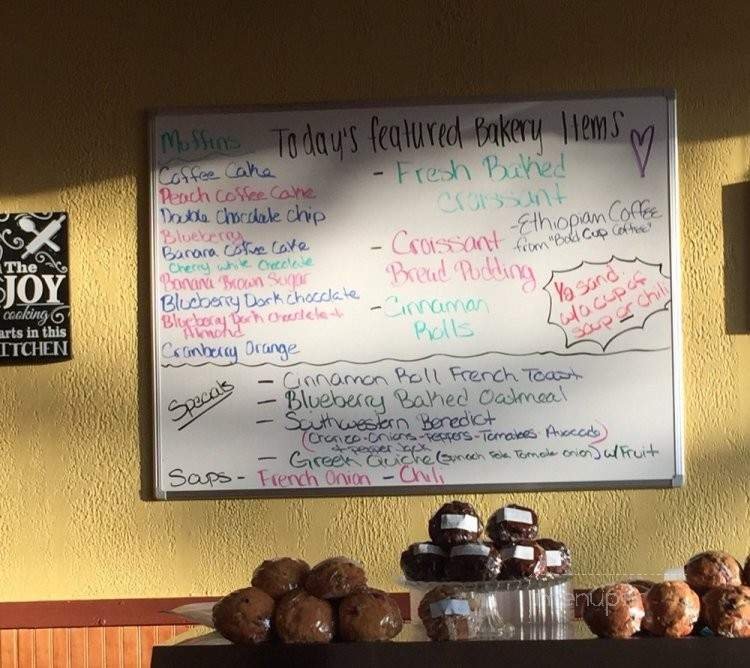 Today's featured Bakery Items
Muffins
Coffee Cake
Peach Coffee Cake
Double Chocolate Chip
Blueberry
Banana Coffee Cake
Cherry white Chocolate
Banana Brown Sugar
Blueberry Dark chocolate
Blueberry Dark chocolate +
Almond
Cranberry Orange
- Fresh Baked
Croissant
- Ethiopian Coffee
from "Bold Cup Coffee"
- Croissant
Bread Pudding
- Cinnamon
Rolls
1/2 sand.
w/a cup of
soup or chili
Specials
- Cinnamon Roll French Toast
- Blueberry Baked Oatmeal
- Southwestern Benedict
(Chorico-Onions-Peppers-Tomatoes-Avocado)
+ pepper jack
- Greek Quiche (Spinach Feta Tomato onion) w/Fruit
Soups - French Onion - Chili
The
JOY
cooking
arts in this
ITCHEN
menupix